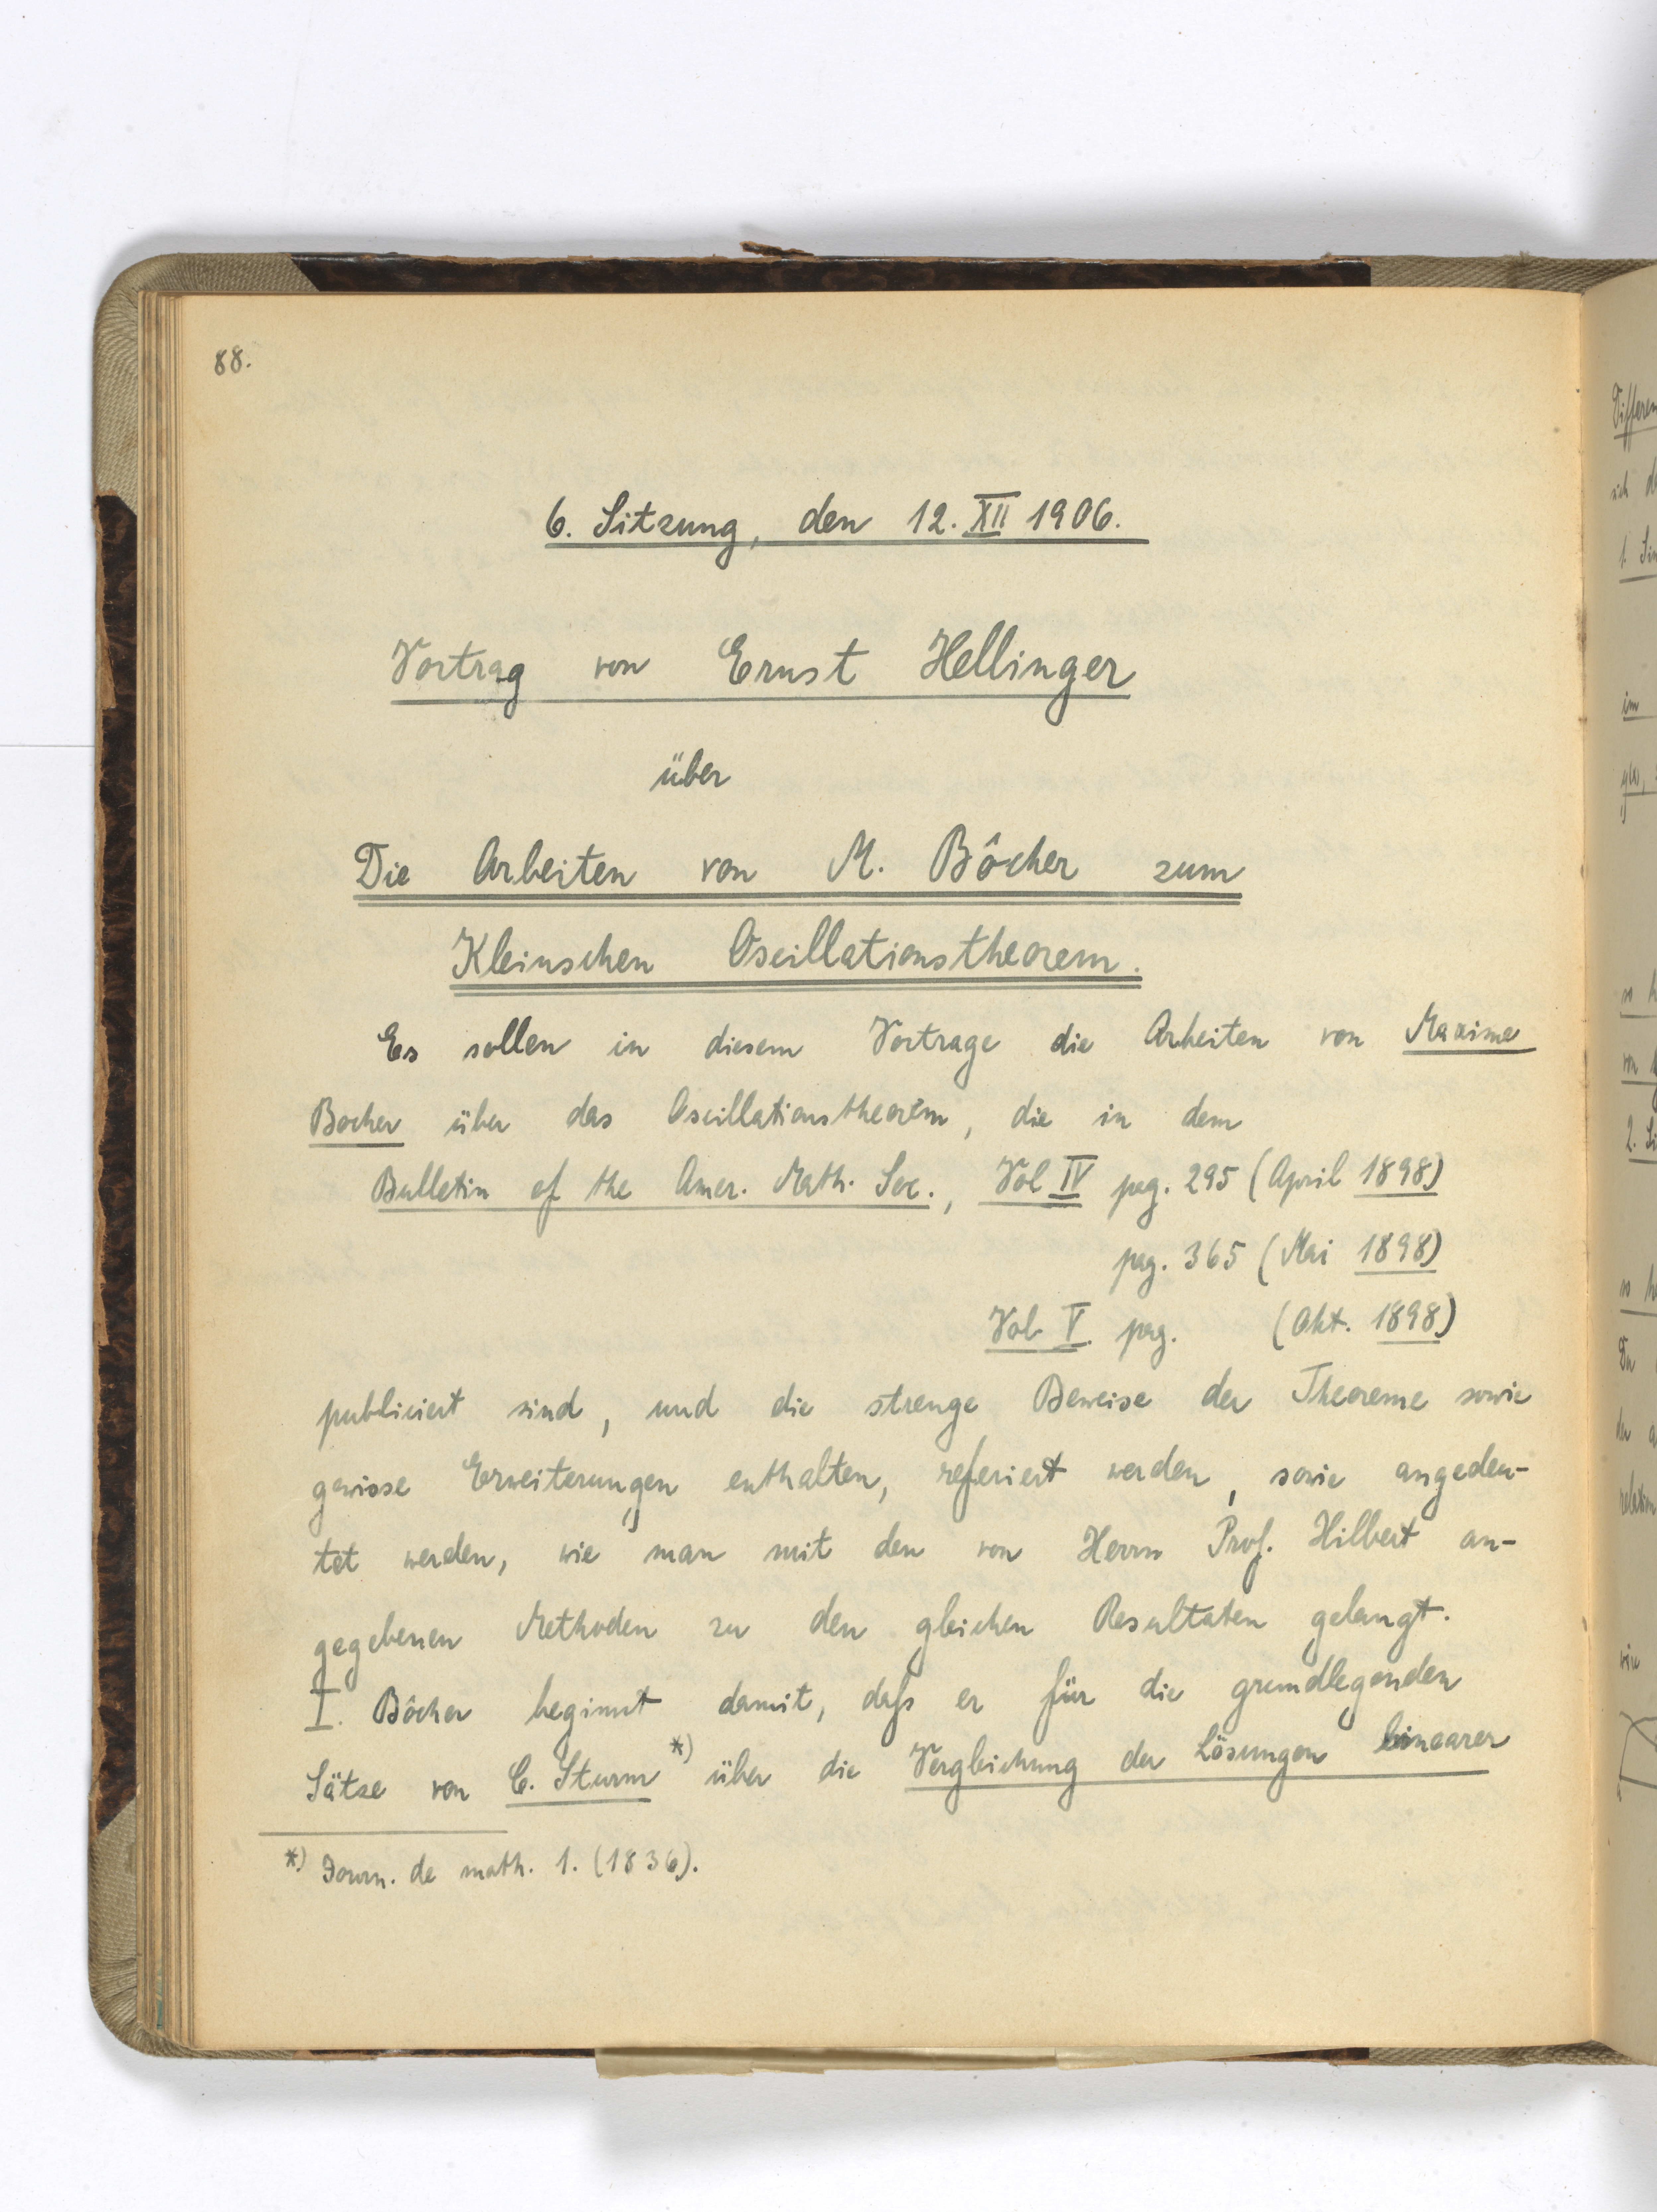 88.
6. Sitzung, den 12. XII 1906.
Vortrag von Ernst Hellinger
über
Die Arbeiten von M. Bôcher zum
Kleinschen Oscillationstheorem.
Es sollen in diesem Vortrage die Arbeiten von Maxime
Bocher über das Oscillationstheorem, die in dem
Bulletin of the Amer. Math. Soc., Vol IV pag. 295 (April 1898)
pag. 365 (Mai 1898)
Vol V. pag. (Okt. 1898)
publiciert sind, und die strenge Beweise der Theoreme sowie
gewisse Erweiterungen enthalten, referiert werden, sowie angedeu-
tet werden, wie man mit den von Herrn Prof. Hilbert an-
gegebenen Methoden zu den gleichen Resultaten gelangt.
I. Bôcher beginnt damit, daß er für die grundlegenden
Sätze von C. Sturm *) über die Vergleichung der Lösungen linearer
*) Journ. de math. 1. (1836).
Differen
sich
1.
im
so
von
2.
so
Du
der
relation
wie